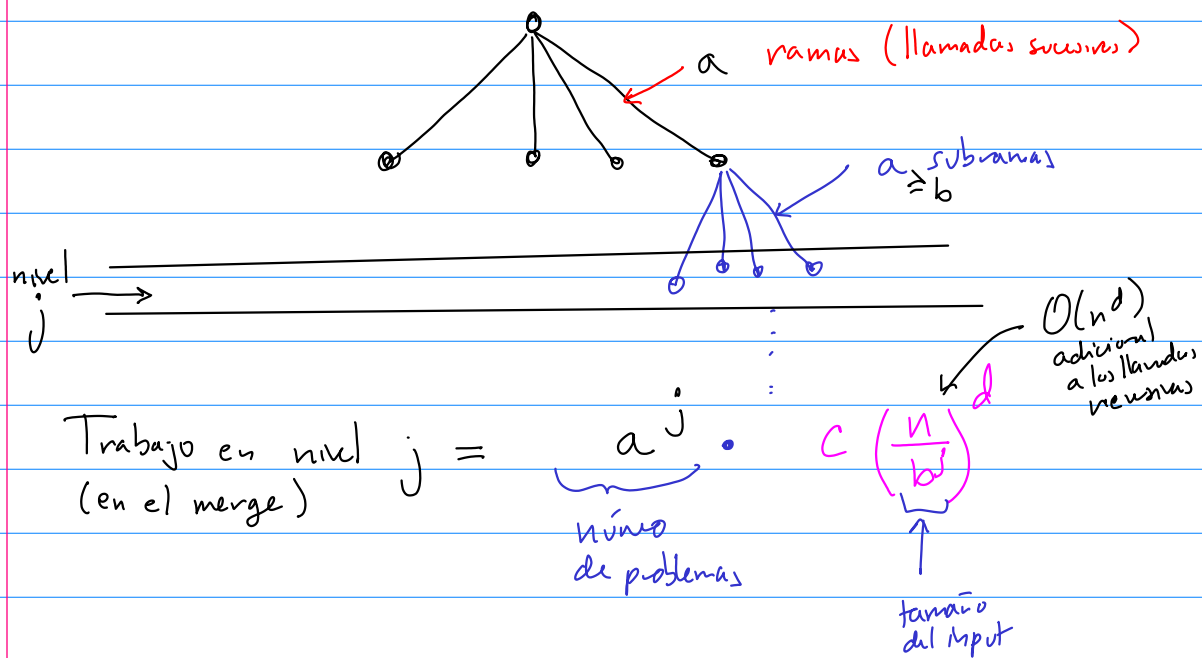 a ramas (llamadas sucesivas)
a subramas
≥ b
nivel
j
O(n^d)
adicional
a las llamadas
recursivas
Trabajo en nivel j = a^j · C (n/b^j)^d
(en el merge)
número
de problemas
tamaño
del input